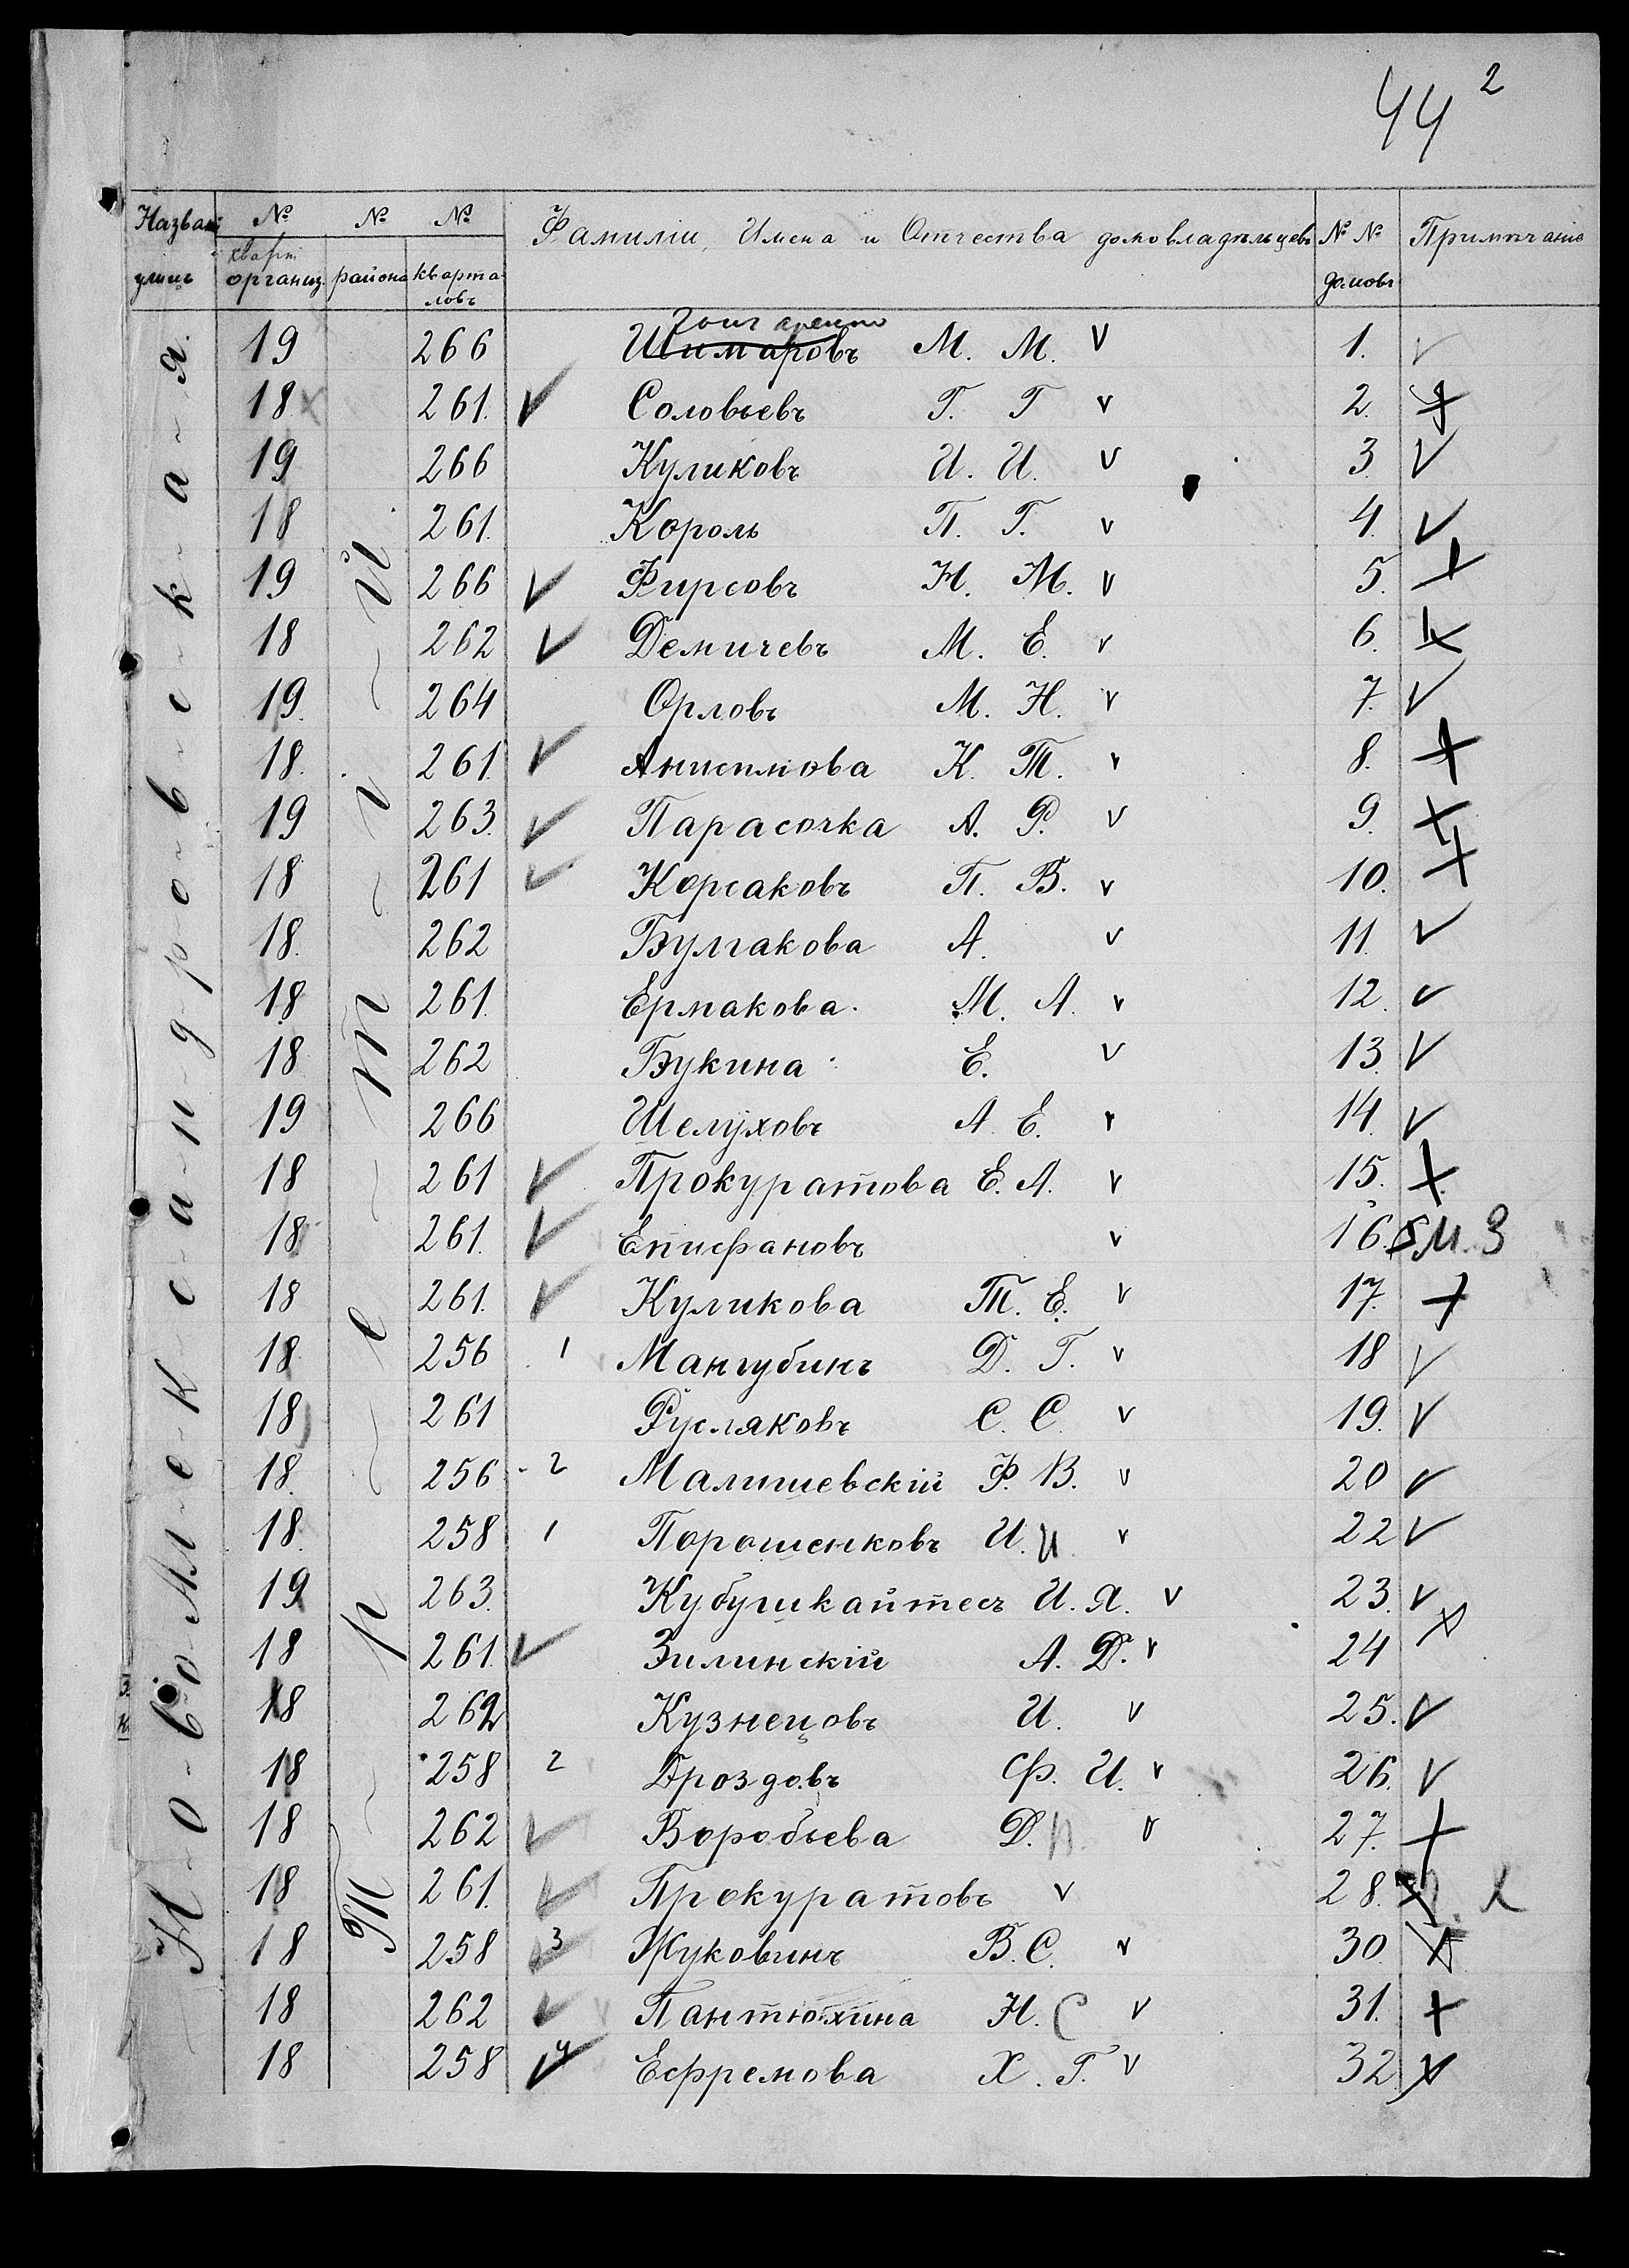 44 2
Назван № № № Фамиліи, Имена и Отчества домовладѣльцевъ № № Примѣчаніе
улицъ кварт организ. района кварталовъ домовъ
Н-о-в-о-Ал-е-к-с-а-н-д-р-о-в-с-к-а-я.
Т-р-е-т-і-й.
19 266 Шимаровъ М. М. V 1. V
18 261. V Соловьевъ Г. Г V 2.
19 266 Куликовъ И. И. V 3. V
18 261. Король П. Г. V 4. V
19 266 V Фирсовъ Н. М. V 5.
18 262 V Демичевъ М. Е. V 6.
19. 264 Орловъ М. Н. V 7. V
18. 261. V Анисимова К. Т. V 8.
19 263. V Парасочка А. Р. V 9.
18 261 V Корсаковъ П. В. V 10.
18. 262 Булгакова А. V 11. V
18 261. Ермакова. М. А. V 12. V
18 262 Букина Е. V 13. V
19 266 Шелуховъ А. Е. V 14. V
18 261 V Прокуратова Е. А. V 15.
18 261. V Епифановъ V 16.
18 261. V Куликова Т. Е. V 17.
18 256 1 Мангубинъ Д. Г. V 18 V
18 261 Русляковъ С. С. V 19. V
18. 256 2 Малишевскій Ф. В. V 20 V
18. 258 1 Порошенковъ И. И. V 22 V
19 263. Кубушкайтесъ И. Я. V 23. V
18 261. V Зилинскій А. Д. V 24
18 262 Кузнецовъ И. V 25. V
18 258 2 Дроздовъ Ф. И. V 26. V
18 262 V Воробьева Д. V 27.
18 261. V Прокуратовъ V 28.
18 258 3 Жуковинъ В. С. V 30
18 262 V Пантюхина Н. С V 31.
18 258 4 Ефремова Х. Г. V 32